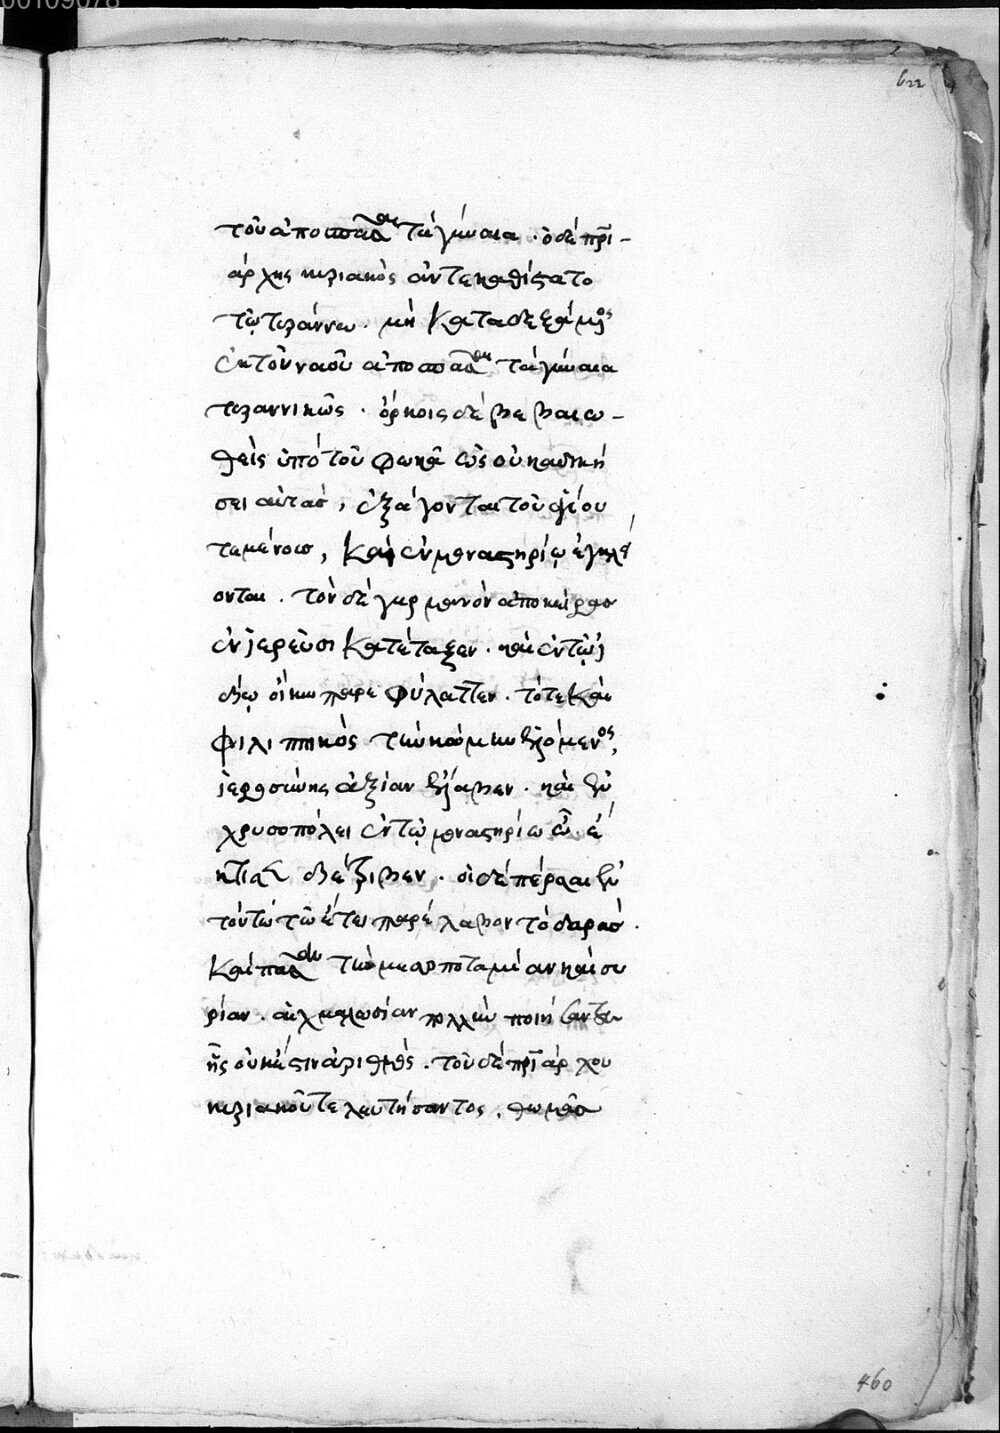 00109078
622
τοῦ ἀποσπᾶσθαι τὰ γύναια · ὁ δὲ πρι-
άρχης κυριακὸς ἀντεκαθίστατο
τῷ τυράννω · μὴ καταδεξάμενος
ἐκ τοῦ ναοῦ ἀποσπασθῆναι τὰ γύναια
τυραννικῶς · ὅρκοις δὲ βεβαιω-
θεὶς ὑπὸ τοῦ φωκᾶ ὡς οὐκ ἀδικήσει
σει αὐτὰς, ἐξάγονται τοῦ θείου
τεμένους, καὶ ἐν μοναστηρίῳ ἐγκλεί
ονται · τὸν δὲ γερμανὸν ἀποκείρας
ἐν ἱερεῦσι κατέταξεν · καὶ ἐν τῷ ἰ
δίῳ οἴκω παρεφύλαττεν · τότε καὶ
φιλιππικὸς τὴν κόμην κειρόμενος,
ἱερωσύνης ἀξίαν ἔλαβεν · καὶ ἐν
χρυσοπόλει ἐν τῷ μοναστηρίω ὃ ἔ
κτισε διέτριβεν · οἱ δὲ πέρσαι ἐν
τούτω τῶ ἔτει παρέλαβον τὸ δαρὰς ·
καὶ πᾶσαν τὴν μεσοποταμίαν καὶ συ
ρίαν · αἰχμαλωσίαν πολλὴν ποιήσαντες
ἧς οὐκ ἔστιν ἀριθμός · τοῦ δὲ πριάρχου
κυριακοῦ τελευτήσαντος, θωμᾶς
460